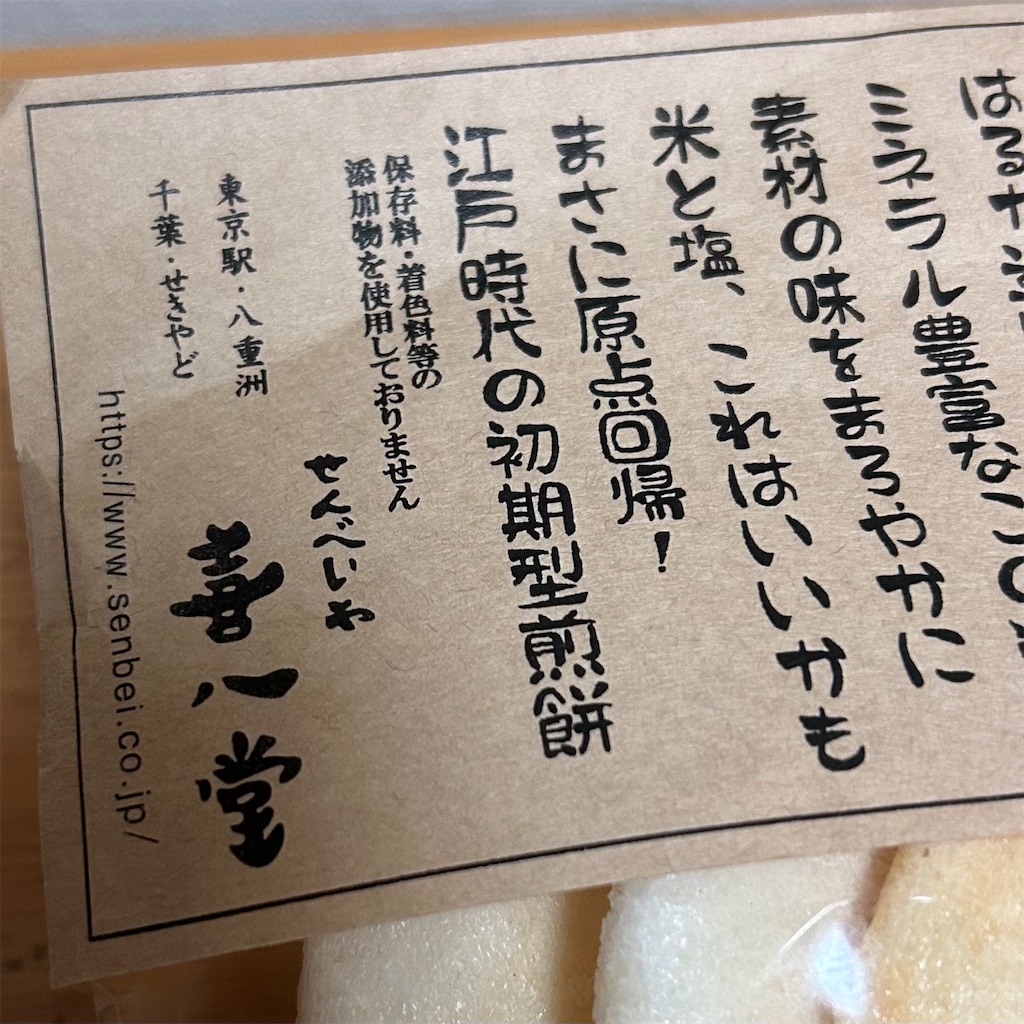 はるか
ミネラル豊富なこの
素材の味をまろやかに
米と塩、これはいいかも
まさに原点回帰！
江戸時代の初期型煎餅
保存料・着色料等の
添加物を使用しておりません
せんべいや
喜八堂
東京駅・八重洲
千葉・せきやど
https://www.senbei.co.jp/